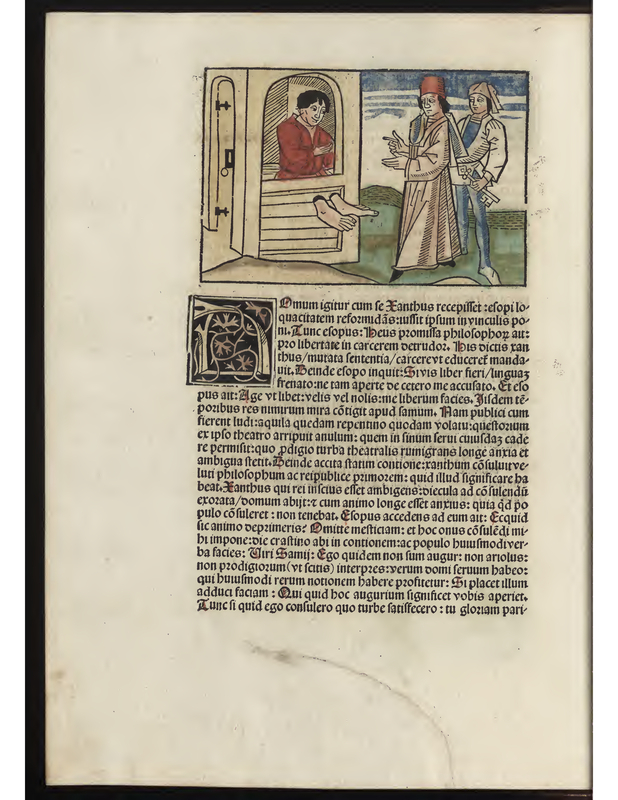 Domum igitur cum se Xanthus recepisset : esopi lo-
quacitatem reformidãs : iussit ipsum in vinculis po-
ni. Tunc esopus : Heus promissa philosophoꝝ ait :
pro libertate in carcerem detrudor. His dictis xan
thus / mutata sententia / carcere vt educeret᷑ manda-
uit. Deinde esopo inquit : Si vis liber fieri / linguaꝫ
frenato : ne tam aperte de cetero me accusato. Et eso
pus ait : Age vt libet : velis vel nolis : me liberum facies. Jisdem tẽ-
poribus res nimirum mira cõtigit apud samum. Nam publici cum
fierent ludi : aquila quedam repentino quodam volatu : questorium
ex ipso theatro arripuit anulum : quem in sinum serui cuiusdaꝫ cade
re permisit : quo ꝓdigio turba theatralis ruinigrans longe anxia et
ambigua stetit. Deinde accita statim contione : xanthum cõsuluit ve-
luti philosophum ac reipublice primorem : quid illud significare ha
beat. Xanthus qui rei inscius esset ambigens : diecula ad cõsulendũ
exorata / domum abijt : ⁊ cum animo longe esset anxius : quia qd̓ po
pulo cõsuleret : non tenebat. Esopus accedens ad eum ait : Ecquid
sic animo deprimeris? Omitte mesticiam : et hoc onus cõsulẽdi mi-
hi impone : die crastino abi in contionem : ac populo huiusmodi ver-
ba facies : Uiri Samij : Ego quidem non sum augur : non ariolus :
non prodigiorum (vt scitis) interpres : verum domi seruum habeo :
qui huiusmodi rerum notionem habere profitetur : Si placet illum
adduci faciam : Qui quid hoc augurium significet vobis aperiet.
Tunc si quid ego consulero quo turbe satisfecero : tu gloriam pari-